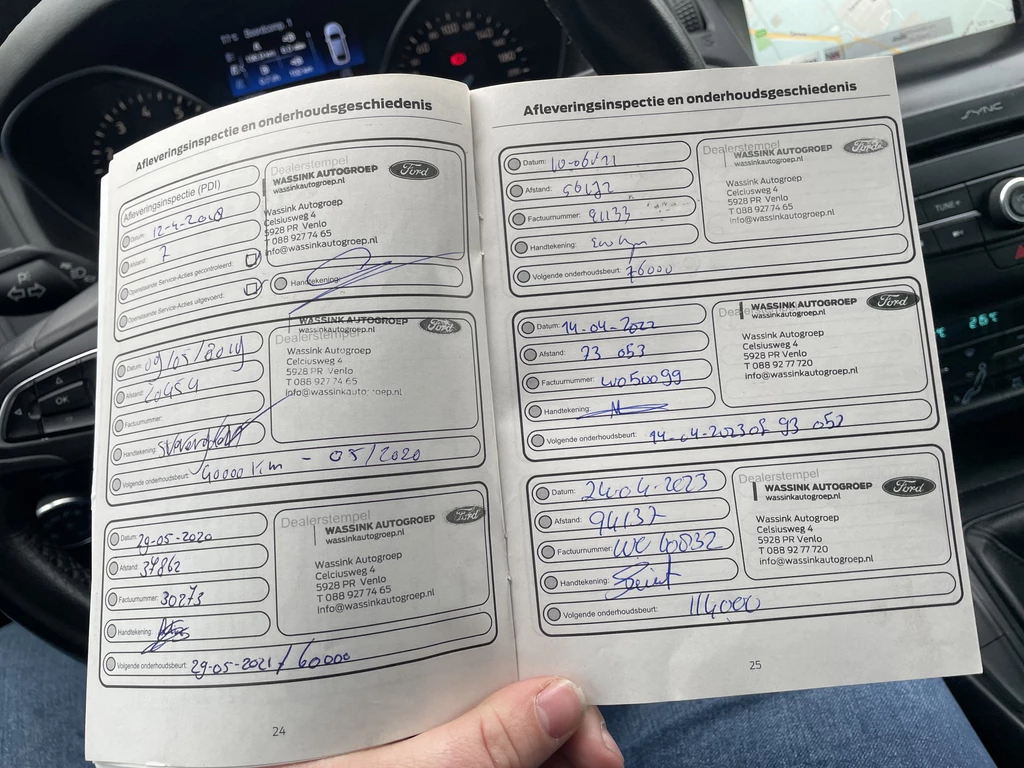 Afleveringsinspectie en onderhoudsgeschiedenis
Afleveringsinspectie (PDI)
Datum: 12-4-2018
Afstand: 7
Openstaande Service-Acties gecontroleerd:
Openstaande Service-Acties uitgevoerd:
Dealerstempel
WASSINK AUTOGROEP
wassinkautogroep.nl
Ford
Wassink Autogroep
Celsiusweg 4
5928 PR Venlo
T 088 927 74 65
info@wassinkautogroep.nl
Handtekening:
Datum: 09/05/2019
Afstand: 20454
Factuurnummer:
Handtekening:
Volgende onderhoudsbeurt: 40000 Km - 05/2020
WASSINK AUTOGROEP
wassinkautogroep.nl
Ford
Dealerstempel
Wassink Autogroep
Celciusweg 4
5928 PR Venlo
T 088 927 74 65
info@wassinkautogroep.nl
Datum: 29-05-2020
Afstand: 37862
Factuurnummer: 30273
Handtekening:
Volgende onderhoudsbeurt: 29-05-2021 / 60000
Dealerstempel
WASSINK AUTOGROEP
wassinkautogroep.nl
Ford
Wassink Autogroep
Celciusweg 4
5928 PR Venlo
T 088 927 74 65
info@wassinkautogroep.nl
24
Afleveringsinspectie en onderhoudsgeschiedenis
Datum:
Afstand:
Factuurnummer: 91133
Handtekening:
Volgende onderhoudsbeurt: 76000
Dealerstempel
WASSINK AUTOGROEP
wassinkautogroep.nl
Ford
Wassink Autogroep
Celciusweg 4
5928 PR Venlo
T 088 927 74 65
info@wassinkautogroep.nl
Datum: 14-04-2022
Afstand: 73 053
Factuurnummer: WO50099
Handtekening:
Volgende onderhoudsbeurt: 14-04-2023 of 93 053
WASSINK AUTOGROEP
wassinkautogroep.nl
Ford
Wassink Autogroep
Celsiusweg 4
5928 PR Venlo
T 088 92 77 720
info@wassinkautogroep.nl
Datum: 24-04-2023
Afstand: 94137
Factuurnummer: WO 60832
Handtekening:
Volgende onderhoudsbeurt: 114000
Dealerstempel
WASSINK AUTOGROEP
wassinkautogroep.nl
Ford
Wassink Autogroep
Celsiusweg 4
5928 PR Venlo
T 088 92 77 720
info@wassinkautogroep.nl
25
SYNC
TUNE+
OK